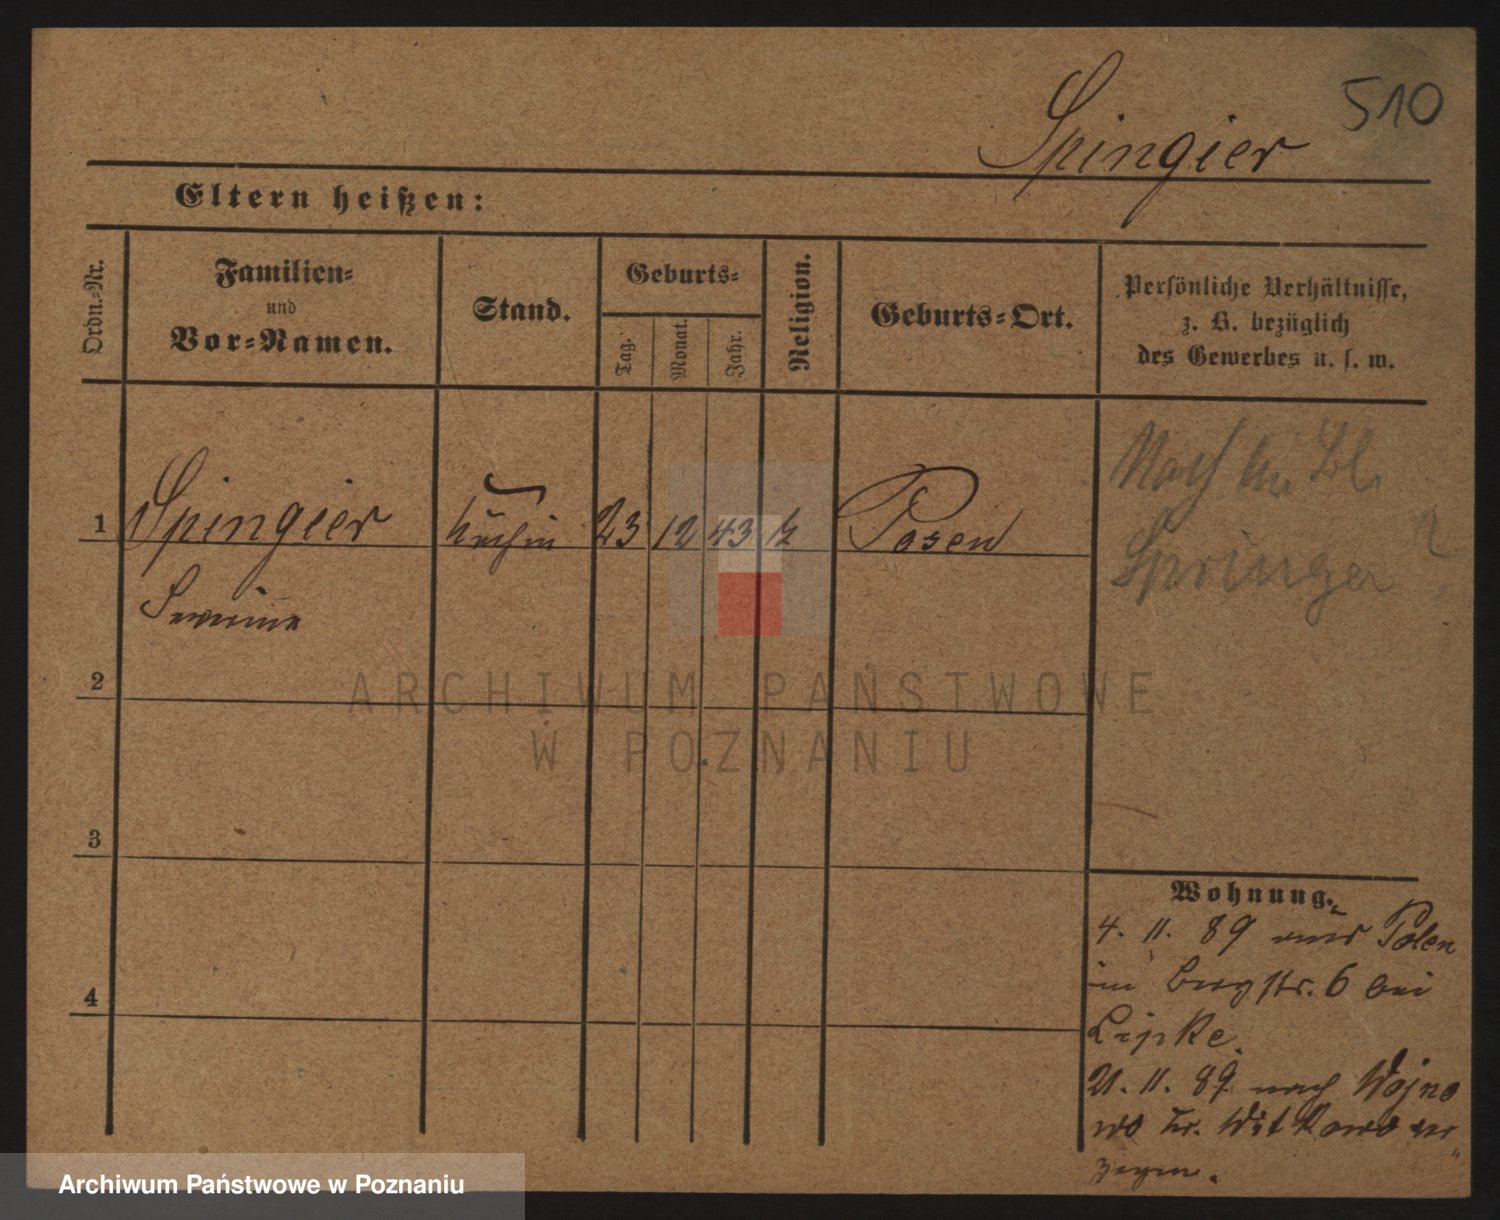 510
Spingier
Eltern heißen:
Ordn.=Nr.
Familien=
und
Vor=Namen.
Stand.
Geburts=
Tag.
Monat.
Jahr.
Religion.
Geburts=Ort.
Persönliche Verhältnisse,
z. B. bezüglich
des Gewerbes u. s. w.
1 Spingier Köchin 23 12 43 k Posen
Severine
Springer
2
3
4
Wohnung.
4. 11. 89 aus Polen
in Bergstr. 6 bei
Lipke.
21. 11. 89 nach Wojno
wo Kr. Witkowo ver
zogen.
ARCHIWUM PAŃSTWOWE
W POZNANIU
Archiwum Państwowe w Poznaniu